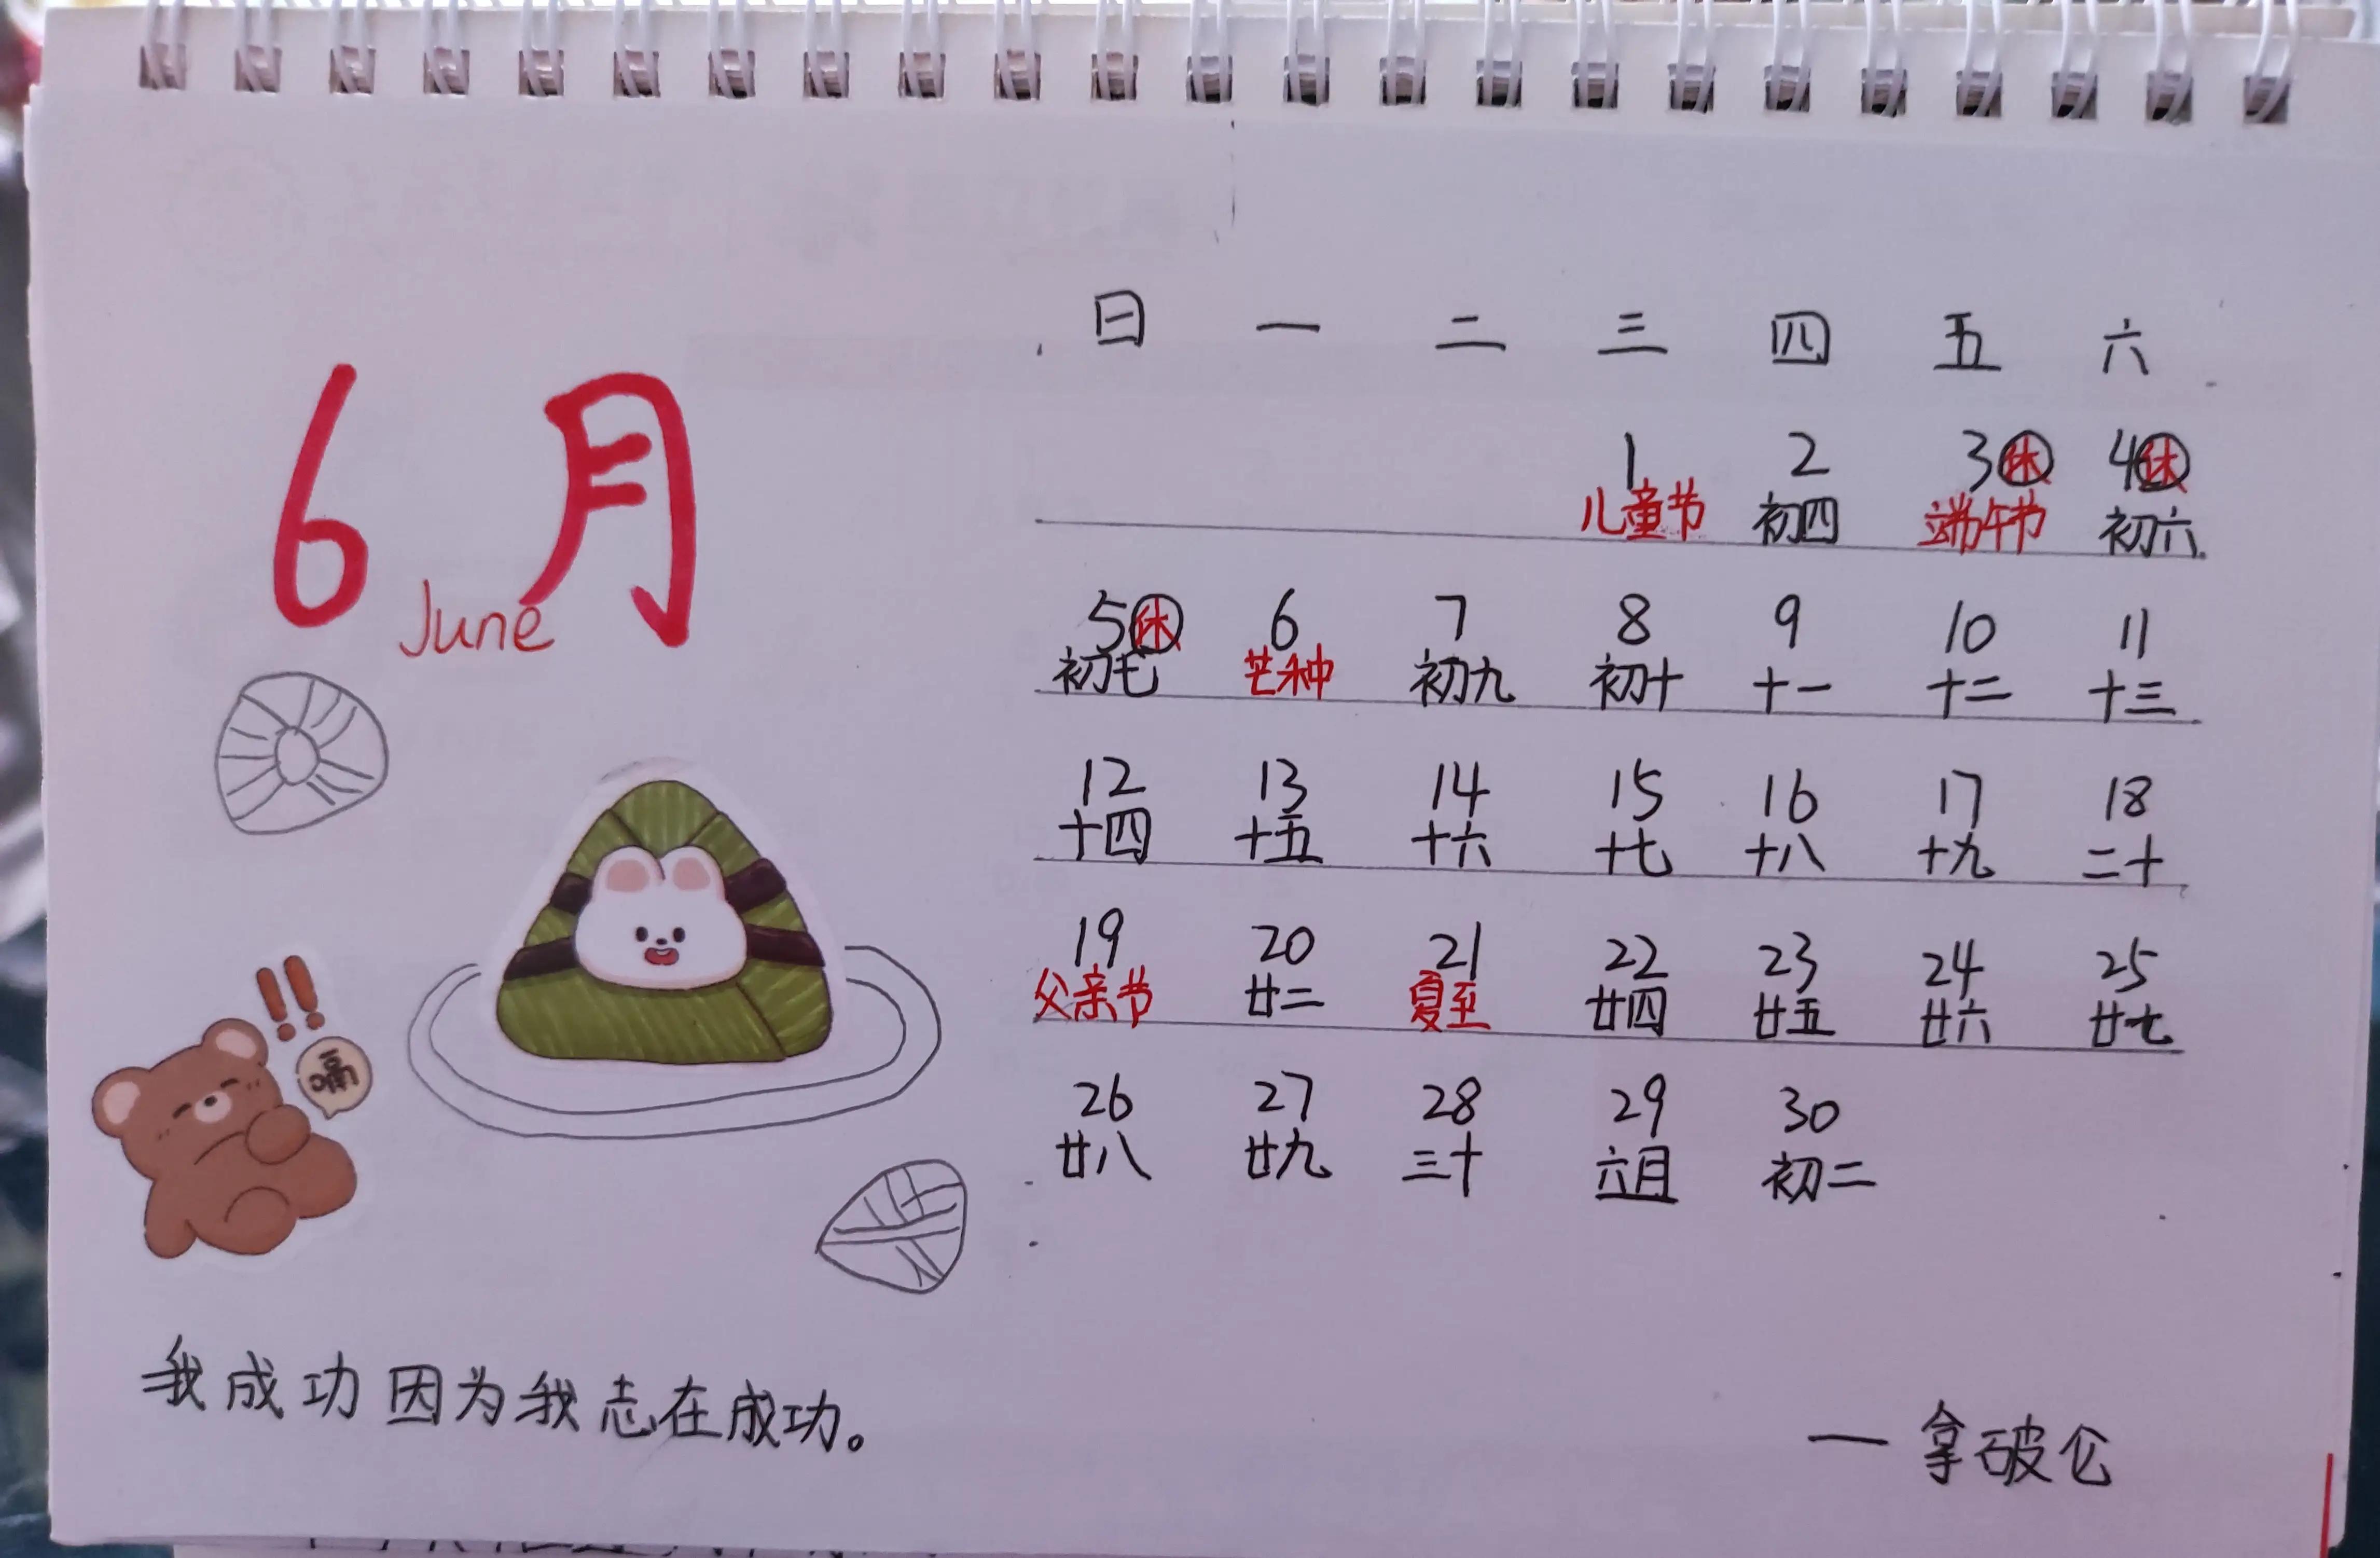 6月
June
日 一 二 三 四 五 六
1 2 3休 4休
儿童节 初四 端午节 初六
5休 6 7 8 9 10 11
初七 芒种 初九 初十 十一 十二 十三
12 13 14 15 16 17 18
十四 十五 十六 十七 十八 十九 二十
19 20 21 22 23 24 25
父亲节 廿二 夏至 廿四 廿五 廿六 廿七
26 27 28 29 30
廿八 廿九 三十 六月 初二
!!
嗝
我成功因为我志在成功。
—拿破仑